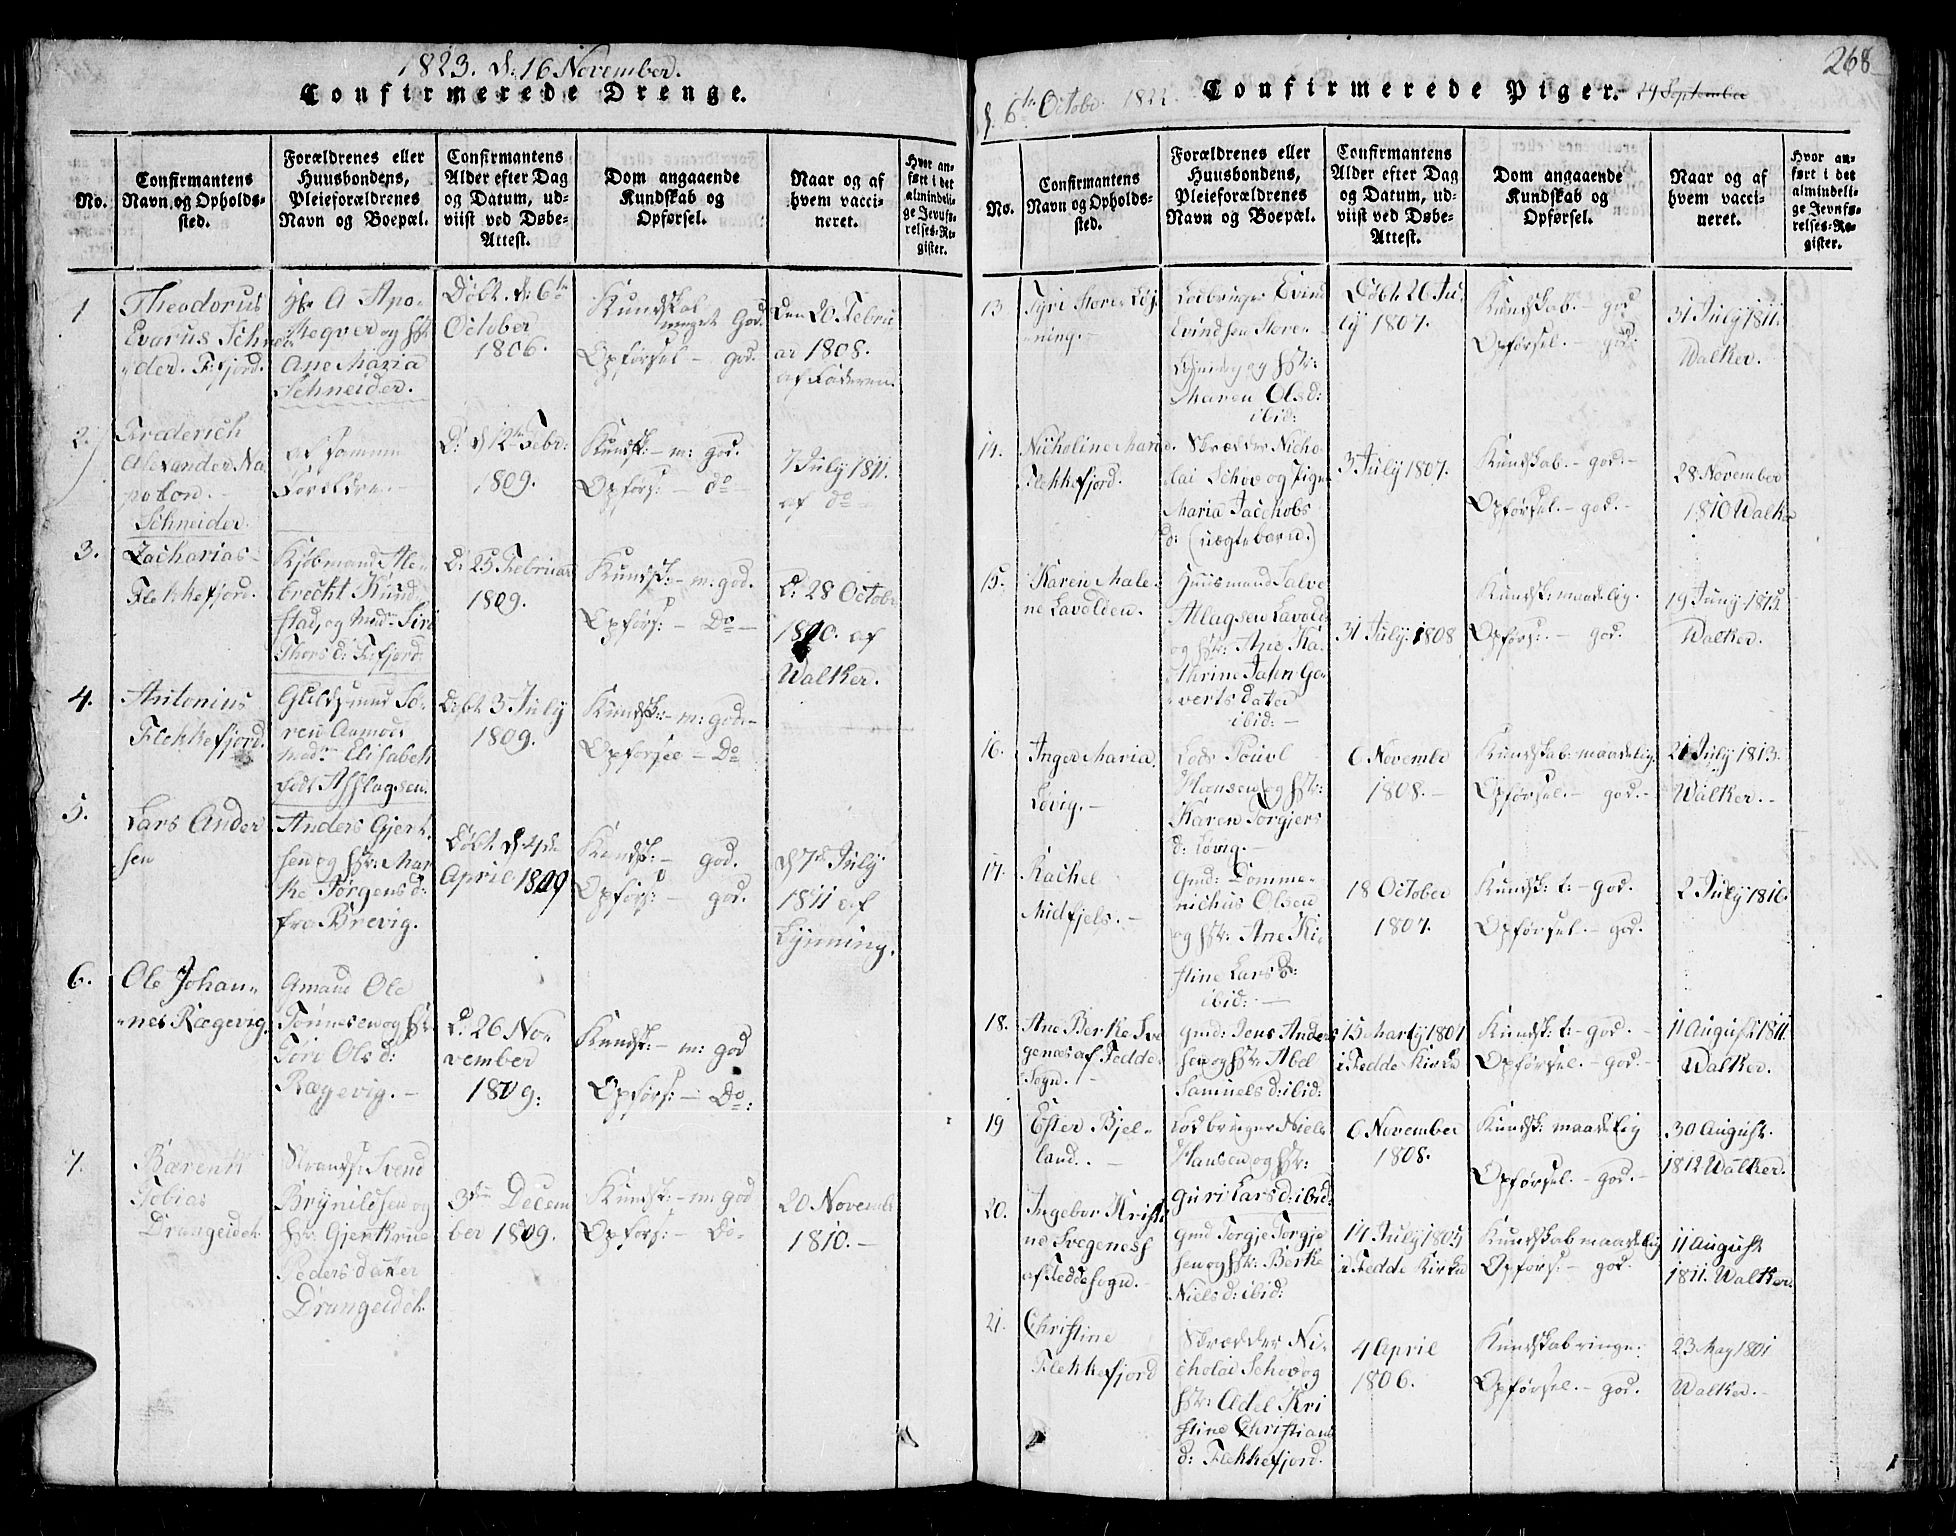 1823. d: 16 November.
Confirmerede Drenge.
No.
Confirmantens
Navn og Opholds-
sted.
Forældrenes eller
Huusbondens,
Pleieforældrenes
Navn og Boepæl.
Confirmantens
Alder efter Dag
og Datum, ud-
viist ved Døbe-
Attest.
Dom angaaende
Kundskab og
Opførsel.
Naar og af
hvem vacci-
neret.
Hvor an-
ført i det
almindeli-
ge Jevnfø-
relses-Re-
gister.
1
Theodorus
Evarus Schnei
der. F:fjord.
A Apo-
theqver og
Ane Maria
Schneider.
Døbt. d: 6te
October
1806.
Kundskab
meget God.
Opførsel - god.
Den 20 Febru
ar 1808.
af Faderen.
2.
Frederich
Alexander Na
poleon.
Schneider.
af samme
Forældre
D: d 12te Febr:
1809.
Kundsk: - m: god.
Opførs: - do -
7 July 1811.
af do
3.
Zacharias
Flekkefjord.
Kjøbmand Al-
brecht Kund
stad, og Mad: Siri
Thors d: F:fjord.
D: 25 Februar
1809.
Kundsk: - m: god.
Opførs: - Do -
D: 28 Octobr
1810. af
Walker.
4.
Antonius
Flekkefjord.
Guldsmed Sø-
ren Aamodt
Mad: Elisabeth
født Asslagsen.
Døbt 3 July
1809.
Kundsk: - m: god. -
Opførsel - Do
5.
Lars Ander
sen
Anders Gjert
sen og Hstr: Mar
the Tørgens d:
fra Brevig.
Døbt d 4de
April 1809
Kundsk: - god.
Opførs: - god.
d 7de July
1811 af
Lynning.
6.
Ole Johan-
nes Rægevig.
Gmand Ole
Tønnesen og Hstr.
Tori Ols d:
Rægevig. -
D: 26 No-
vember
1809:
Kundsk: - m: god
Opførs: - Do:
7.
Bærent
Tobias
Drangeidet.
Strands: Svend
Brynildsen og
Hstr: Gjertrue
Peders datter
Drangeidet.
3die Decem
ber 1809.
Kundsk: - m: god
Opførs: - Do -
20 Novembr
1810. -
268
d. 6te Octobr. 1822. Confirmerede Piger. 29 September
No.
Confirmantens
Navn og Opholds-
sted.
Forældrenes eller
Huusbondens,
Pleieforældrenes
Navn og Boepæl.
Confirmantens
Alder efter Dag
og Datum, ud-
viist ved Døbe-
Attest.
Dom angaaende
Kundskab og
Opførsel.
Naar og af
hvem vacci-
neret.
Hvor an-
ført i det
almindeli-
ge Jevnfø-
relses-Re-
gister.
13
Tyri Store Løj
ning. -
Lodbruger Evind
Evindsen Store
Løjning og Hstr:
Maren Olsd:
ibid:
Døbt 26 Ju-
ly 1807.
Kundskab - god
Opførsel. - god.
31 July 1811.
Walker.
14.
Nicholine Marie
Flekkefjord.
Skrædder Nicho-
lai Schov og Pige
Maria Jacobs
d: (uægte barn.)
3 July 1807.
Kundskab. - god. -
Opførsel. - god. -
28 November
1810 Walker
15.
Karen Male-
ne Lavolden.
Huusmand Salve
Atlagsen Lavold
og Hstr: Ane Ka-
thrine Jahn Ge-
verts datter
ibid: -
31 July. 1808
Kundsk: maadelig.
Opførs: - god.
19 Juny 1815.
Walker.
16.
Inger Maria
Løvig. -
Lods Pouvl
Hansen og Hstr:
Karen Torgiers
d: Løvig. -
6 Novembr
1808. -
Kundskab: maadelig.
Opførsel. - god. -
21 July 1813.
Walker. -
17.
Rachel
Midfjels. -
Gmd: Domme-
nichus Olsen
og Hstr: Ane Ki-
stine Lars D:
ibid: -
18 October
1807.
Kundsk: t: - god.
Opførsel. - god.
2 July 1816.
18.
Ane Berte Sve
genæs af Fedde
Sogn. -
Gmd: Jens Anders
sen og Hstr: Abel
Samuels d: ibid:
15 Marty 1807
i Fedde Kirke
Kundsk: t: - god. -
Opførsel. - god -
11 August 1811.
Walker.
19
Ester Bjel-
land. -
Lodbruger Niels
Hansen og Hstr:
Guri Lars d: ibid:
6 November
1808.
Kundsk: maadelig
Opførsel. - god. -
30 August.
1812 Walker.
20.
Ingebor Kristi
ne Svegenes
af Feddesogn. -
Gmd Torgje Torgje
sen og Hstr: Berte
Niels d: ibid:
14 July 1805
i Fedde Kirke
Kundskab maadelig
Opførs: - god.
11 August
1811. Walker.
21.
Christine
Flekkefjord
Skrædder Ni-
cholai Schov og
Hstr: Adel Kri
stine Christians
d: Flekkefjord.
4 April
1806.
Kundskab ringe.
Opførsel. - god.
23 May 1801
Walker. -